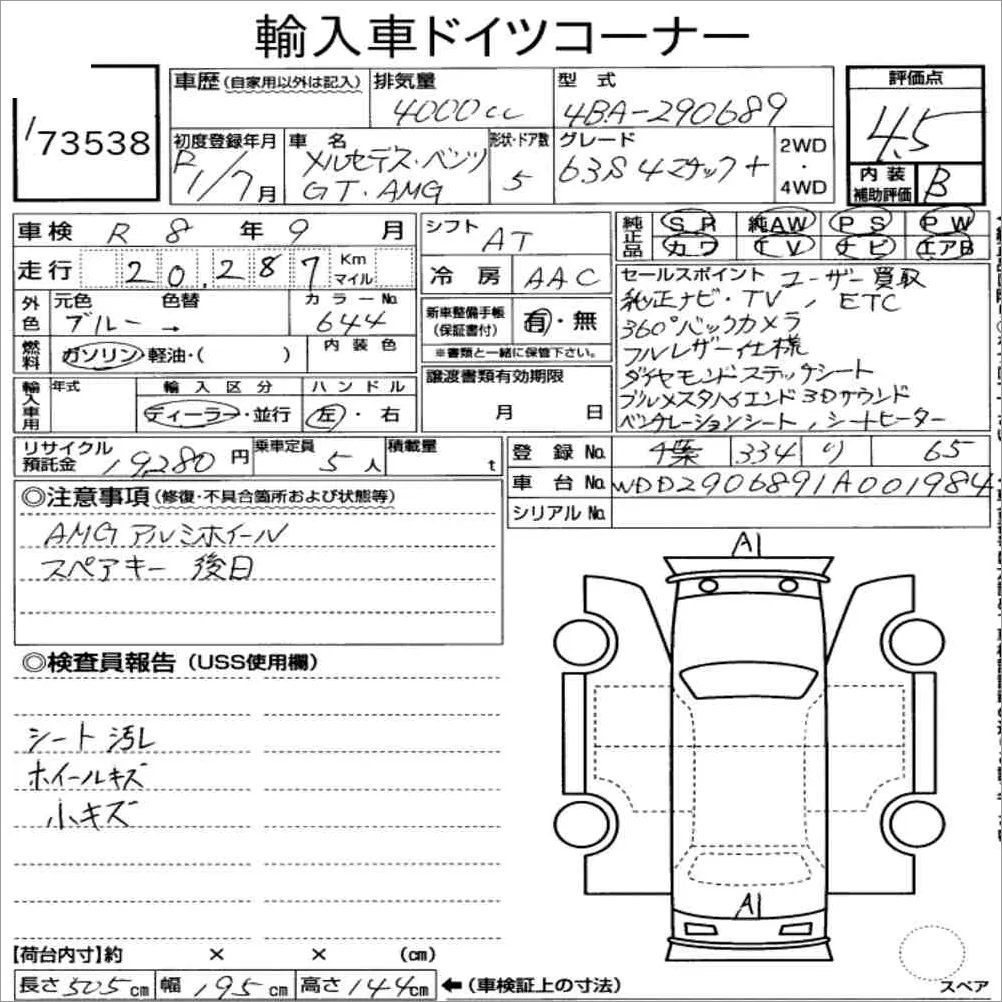 輸入車ドイツコーナー
73538
車歴(自家用以外は記入)
排気量 4000cc
型式 4BA-290689
評価点 4.5
初度登録年月 R1/7月
車名 メルセデス・ベンツ GT・AMG
形状・ドア数 5
グレード 63S 4マチック+
2WD・4WD
内装補助評価 B
車検 R8年9月
シフト AT
純正品 SR 純AW PS PW
カワ TV ナビ エアB
走行 20,287 Km マイル
冷房 AAC
セールスポイント ユーザー買取
純正ナビ・TV, ETC
360°バックカメラ
フルレザー仕様
ダイヤモンドステッチシート
ブルメスタハイエンド3Dサウンド
ベンチレーションシート,シートヒーター
外色 元色 ブルー → 色替
カラーNo. 644
新車整備手帳(保証書付) 有・無
※書類と一緒に保管下さい。
燃料 ガソリン・軽油・( )
内装色
輸入車用 年式
輸入区分 ディーラー・並行
ハンドル 左・右
譲渡書類有効期限
月 日
リサイクル預託金 19280円
乗車定員 5人
積載量 t
登録No. 千葉 334 り 65
車台No. WDD2906891A001984
シリアルNo.
◎注意事項(修復・不具合箇所および状態等)
AMGアルミホイール
スペアキー 後日
A1
◎検査員報告(USS使用欄)
シート汚レ
ホイールキズ
小キズ
A1
【荷台内寸】約 × × (cm)
長さ505cm 幅195cm 高さ144cm ←(車検証上の寸法)
スペア